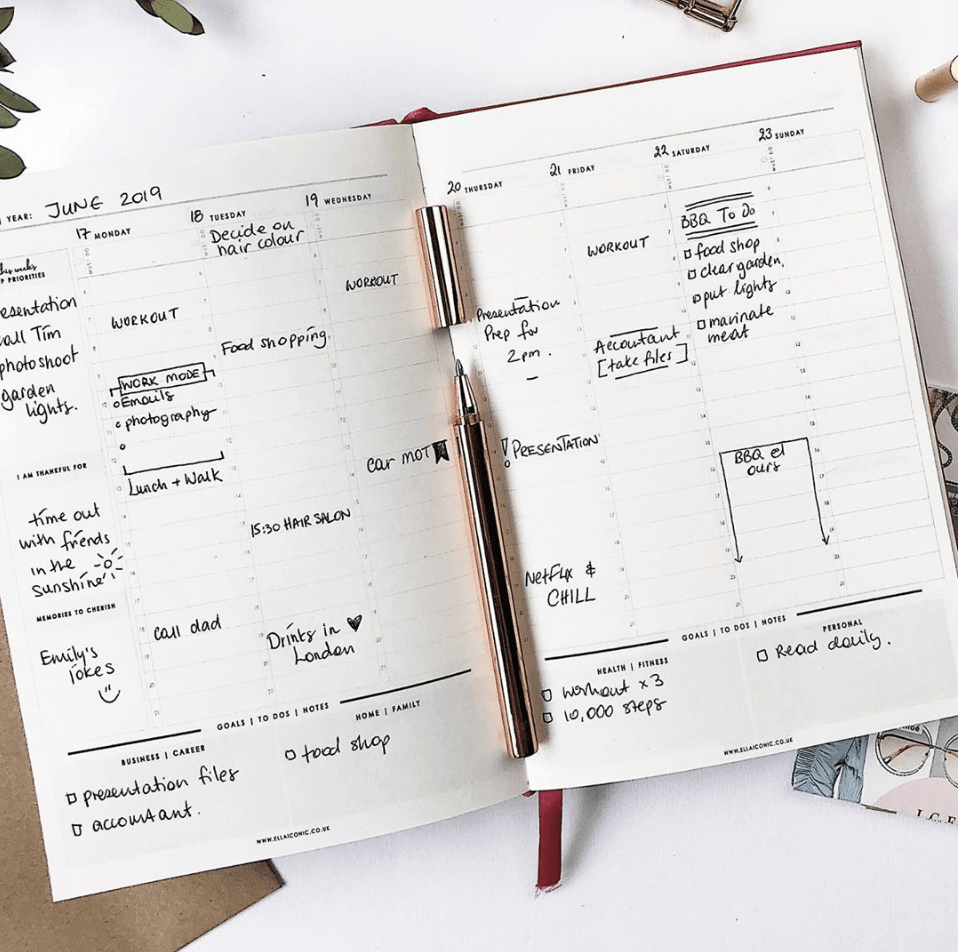 YEAR: JUNE 2019
17 MONDAY
18 TUESDAY
19 WEDNESDAY
PRIORITIES
Presentation
Call Tim
photoshoot
garden
lights.
I AM THANKFUL FOR
time out
with friends
in the
sunshine
MEMORIES TO CHERISH
Emily's
jokes
WORKOUT
WORK MODE
Emails
photography
Lunch + Walk
call dad
Decide on
hair colour
Food shopping
15:30 HAIR SALON
Drinks in
London
WORKOUT
Car MOT
GOALS | TO DOS | NOTES
BUSINESS | CAREER
presentation files
accountant.
HOME | FAMILY
food shop
WWW.ELLAICONIC.CO.UK
20 THURSDAY
21 FRIDAY
22 SATURDAY
23 SUNDAY
Presentation
Prep for
2pm.
! PRESENTATION
NetFlix &
CHILL
WORKOUT
Accountant
[take files]
BBQ To Do
food shop
clear garden
put lights
marinate
meat
BBQ @
ours
GOALS | TO DOS | NOTES
HEALTH | FITNESS
Workout x3
10,000 steps
PERSONAL
Read daily.
WWW.ELLAICONIC.CO.UK